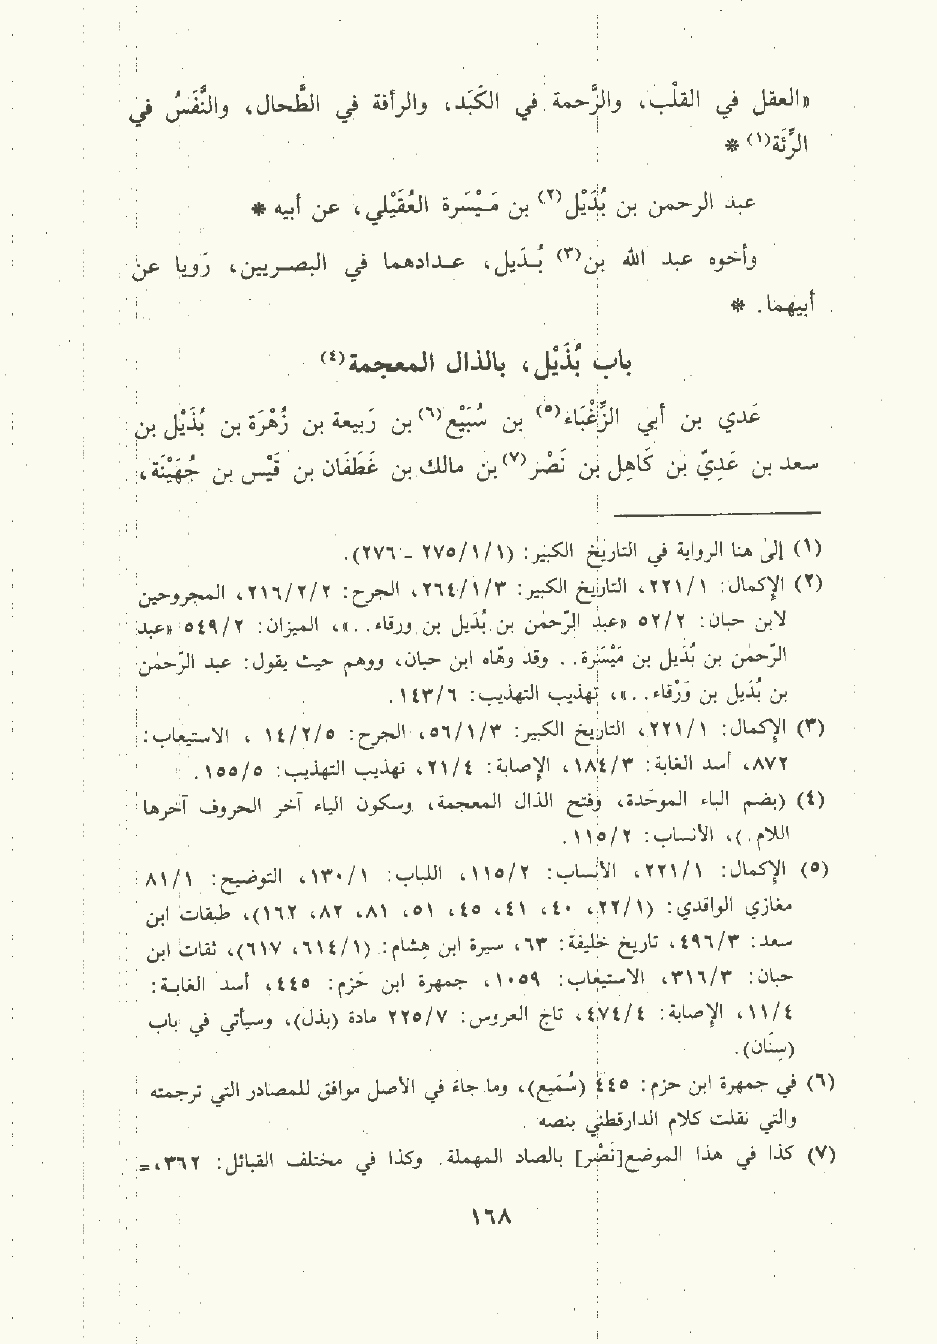 «العقل في القلْب، والرَّحمة في الكَبَد، والرأفة في الطَّحال، والنَّفَسُ في
الرِّئَة(١) *
عبد الرحمن بن بُدَيْل(٢) بن مَيْسَرة العُقَيْلي، عن أبيه *
وأخوه عبد الله بن(٣) بُدَيل، عدادهما في البصريين، رَويا عن
أبيهما. *
باب بُذَيْل، بالذال المعجمة(٤)
عَدي بن أبي الزَّغْبَاء(٥) بن سُبَيْع(٦) بن رَبيعة بن زُهْرَة بن بُذَيْل بن
سعد بن عَدِيّ بن كَاهِل بن نَصْر(٧) بن مالك بن غَطَفَان بن قَيْس بن جُهَيْنَة،
(١) إلى هنا الرواية في التاريخ الكبير: (١/١/٢٧٥ - ٢٧٦).
(٢) الإكمال: ١/٢٢١، التاريخ الكبير: ٣/١/٢٦٤، الجرح: ٢/٢/٢١٦، المجروحين
لابن حبان: ٢/٥٢ «عبد الرّحمٰن بن بُدَيل بن ورقاء..»، الميزان: ٢/٥٤٩ «عبد
الرّحمٰن بن بُدَيل بن مَيْسَرة.. وقد وهَّاه ابن حبان، ووهم حيث يقول: عبد الرّحمٰن
بن بُدَيل بن وَرْقاء..»، تهذيب التهذيب: ٦/١٤٣.
(٣) الإكمال: ١/٢٢١، التاريخ الكبير: ٣/١/٥٦، الجرح: ٥/٢/١٤ ، الاستيعاب:
٨٧٢، أسد الغابة: ٣/١٨٤، الإصابة: ٤/٢١، تهذيب التهذيب: ٥/١٥٥.
(٤) (بضم الباء الموحَدة، وفتح الذال المعجمة، وسكون الياء آخر الحروف آخرها
اللام.)، الأنساب: ٢/١١٥.
(٥) الإكمال: ١/٢٢١، الأنساب: ٢/١١٥، اللباب: ١/١٣٠، التوضيح: ١/٨١
مغازي الواقدي: (١/٢٢، ٤٠، ٤١، ٤٥، ٥١، ٨١، ٨٢، ١٦٢)، طبقات ابن
سعد: ٣/٤٩٦، تاريخ خليفة: ٦٣، سيرة ابن هشام: (١/٦١٤، ٦١٧)، ثقات ابن
حبان: ٣/٣١٦، الاستيعاب: ١٠٥٩، جمهرة ابن حَزم: ٤٤٥، أسد الغابة:
٤/١١، الإصابة: ٤/٤٧٤، تاج العروس: ٧/٢٢٥ مادة (بذل)، وسيأتي في باب
(سِنَان).
(٦) في جمهرة ابن حزم: ٤٤٥ (سُمَيع)، وما جاء في الأصل موافق للمصادر التي ترجمته
والتي نقلت كلام الدارقطني بنصه
(٧) كذا في هذا الموضع[نَصْر] بالصاد المهملة. وكذا في مختلف القبائل: ٣٦٢،=
١٦٨